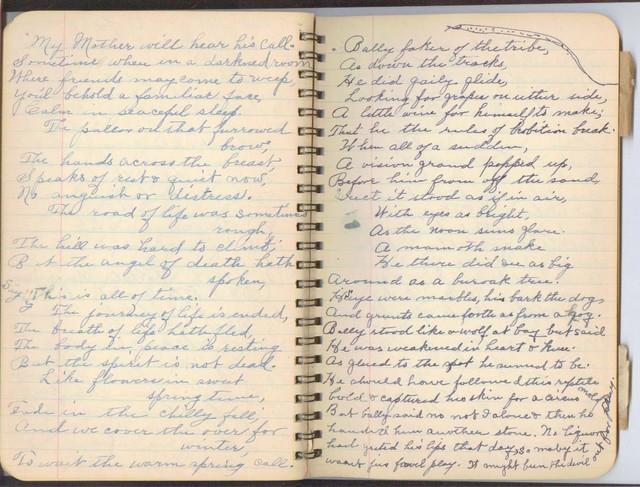 "My Mother will hear his call.
Sometime when in a darkened room
Where friends may come to weep,
You'll behold a familiar face,
Calm in peaceful sleep.
The pallor on that furrowed
brow,
The hands across the breast,
Speaks of rest & quiet now,
No anguish or distress.
The road of life was sometimes
rough,
The hill was hard to climb,
But the angel of death hath
spoken,
"This is all of time.
The journey of life is ended,
The breath of life hath fled,
The body in peace is resting
But the spirit is not dead.
Like flowers in sweet
spring time,
Fade in the chilly fall,
And we cover them over for
winter,
To wait the warm spring call.
Bally faker of the tribe,
As down the tracks,
He did gaily glide,
Looking for grapes on either side,
A little wine for himself to make,
That he the rules of
break.
When all of a sudden,
A vision grand popped up,
Before him from off the sand,
Erect it stood as if in air,
With eyes as bright,
As the noon suns glare.
A mammoth snake
He there did see as big
Around as a buroak tree.
eye were marbles, his bark the dog,
And grunts came forth as from a hog.
Bally stood like a wolf at bay but said
He was weakened in heart & knee.
As glued to the spot he seemed to be.
He should have followed this reptile
bold & captured his skin for a circus
But bally said no not I alone & then he
handed him another stone. No liquor
had
his lips that day, so maby it
wasnt jus fowl play. It might bun the devil
out for play.